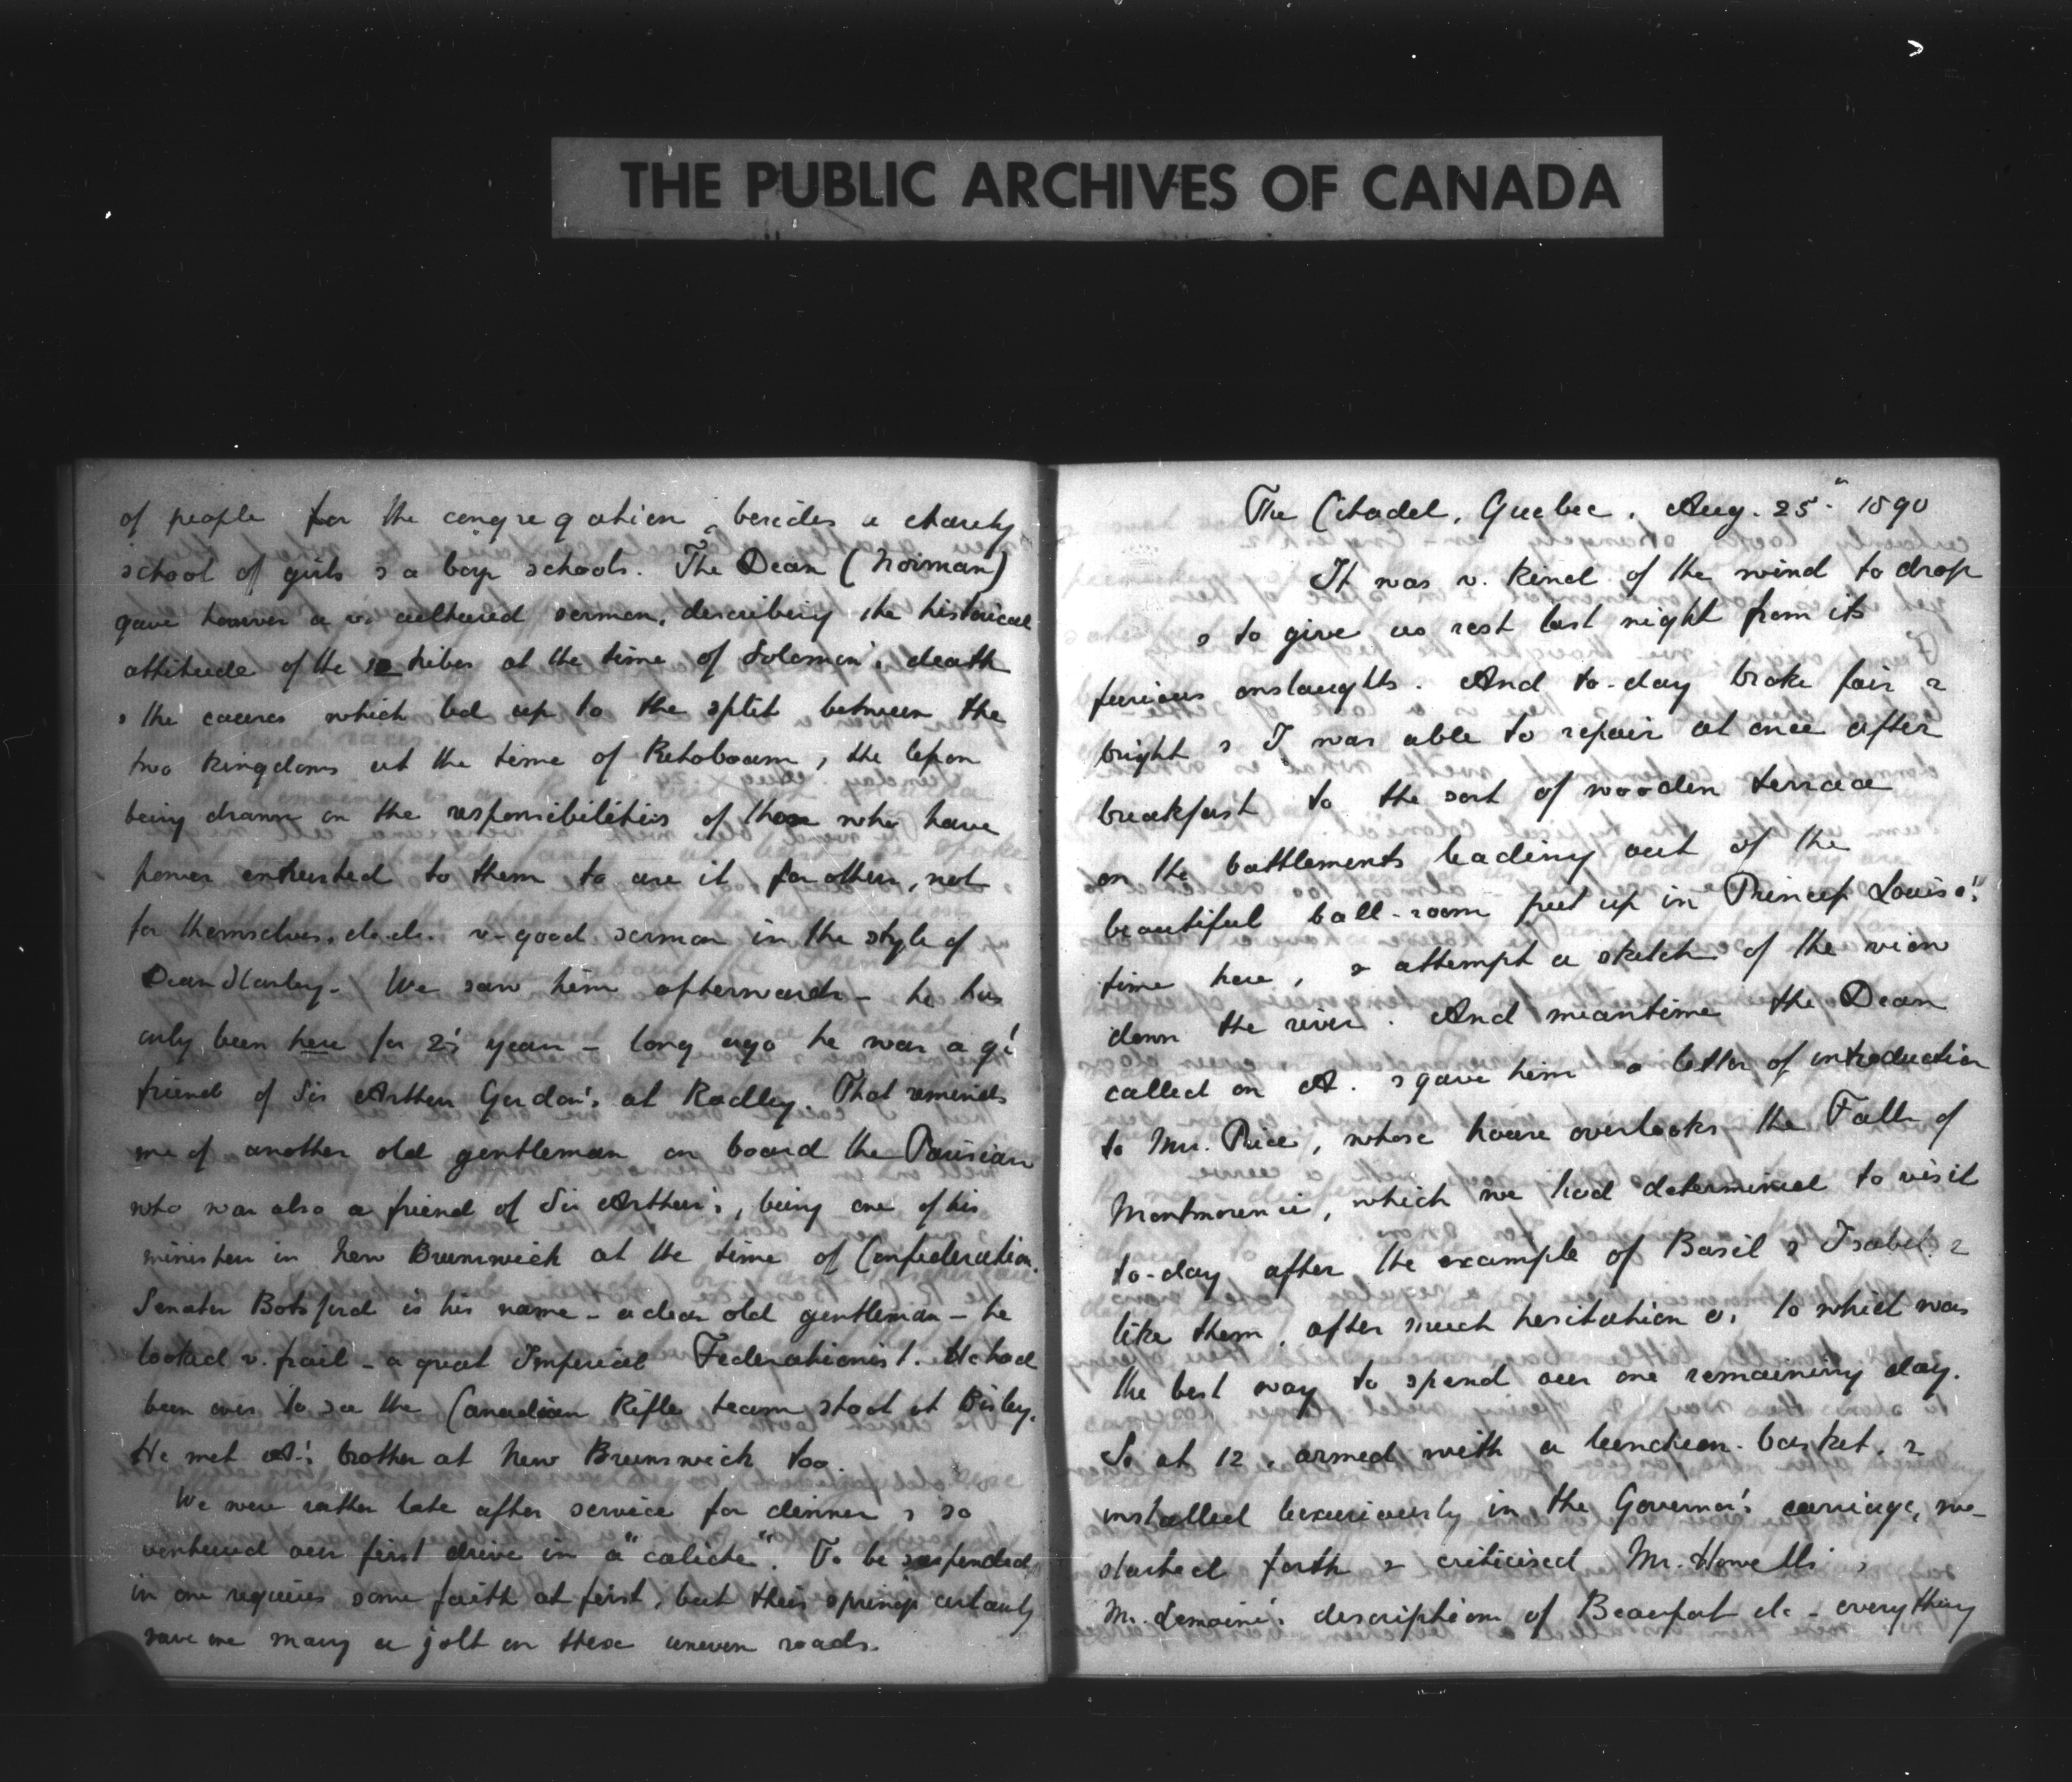 THE PUBLIC ARCHIVES OF CANADA
of people for the congregation, besides a charity
school of girls & a boys schools. The Dean (Norman)
gave however a v. cultured sermon, describing the historical
attitude of the 12 tribes at the time of Solomon's death
& the causes which led up to the split between the
two kingdoms at the time of Rehoboam, the lesson
being drawn on the responsibilities of those who have
power entrusted to them to use it for others, not
for themselves, &c. &c. v. good sermon in the style of
Dean Stanley - We saw him afterwards - he has
only been here for 2½ years - long ago he was a gt.
friend of Sir Arthur Gordon's at Radley. That reminds
me of another old gentleman on board the Parisian
who was also a friend of Sir Arthur's, being one of his
ministers in New Brunswick at the time of Confederation.
Senator Botsford is his name - a dear old gentleman - he
looked v. frail - a great Imperial Federationist. He had
been over to see the Canadian Rifle team shoot at Bisley.
He met A's brother at New Brunswick too.
We were rather late after service for dinner & so
ventured our first drive in a "caliche". To be suspended
in one requires some faith at first, but their springs certainly
save one many a jolt on these uneven roads.
The Citadel, Quebec. Aug. 25th 1890
It was v. kind of the wind to drop
& to give us rest last night from its
furious onslaughts. And to-day broke fair &
bright & I was able to repair at once after
breakfast to the sort of wooden terrace
on the battlements leading out of the
beautiful ball-room put up in Princess Louise's
time here, & attempt a sketch of the view
down the river. And meantime the Dean
called on A. & gave him a letter of introduction
to Mr. Price, whose house overlooks the Falls of
Montmorencie, which we had determined to visit
to-day after the example of Basil & Isabel &
like them, after much hesitation as to which was
the best way to spend our one remaining day.
So at 12, armed with a luncheon-basket, &
installed luxuriously in the Governor's carriage, we
started forth & criticised Mr. Howells' &
Mr. Lemoine's descriptions of Beauport &c - everything